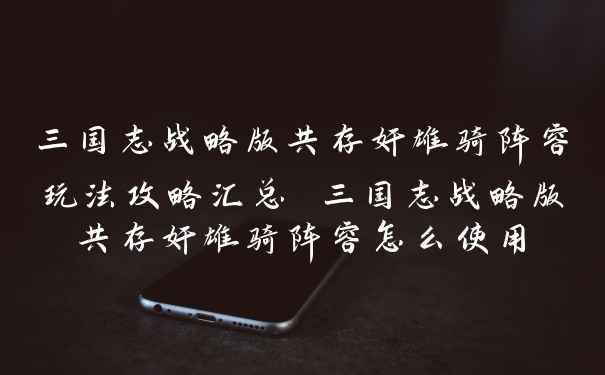 三国志战略版共存奸雄骑阵容
玩法攻略汇总 三国志战略版
共存奸雄骑阵容怎么使用